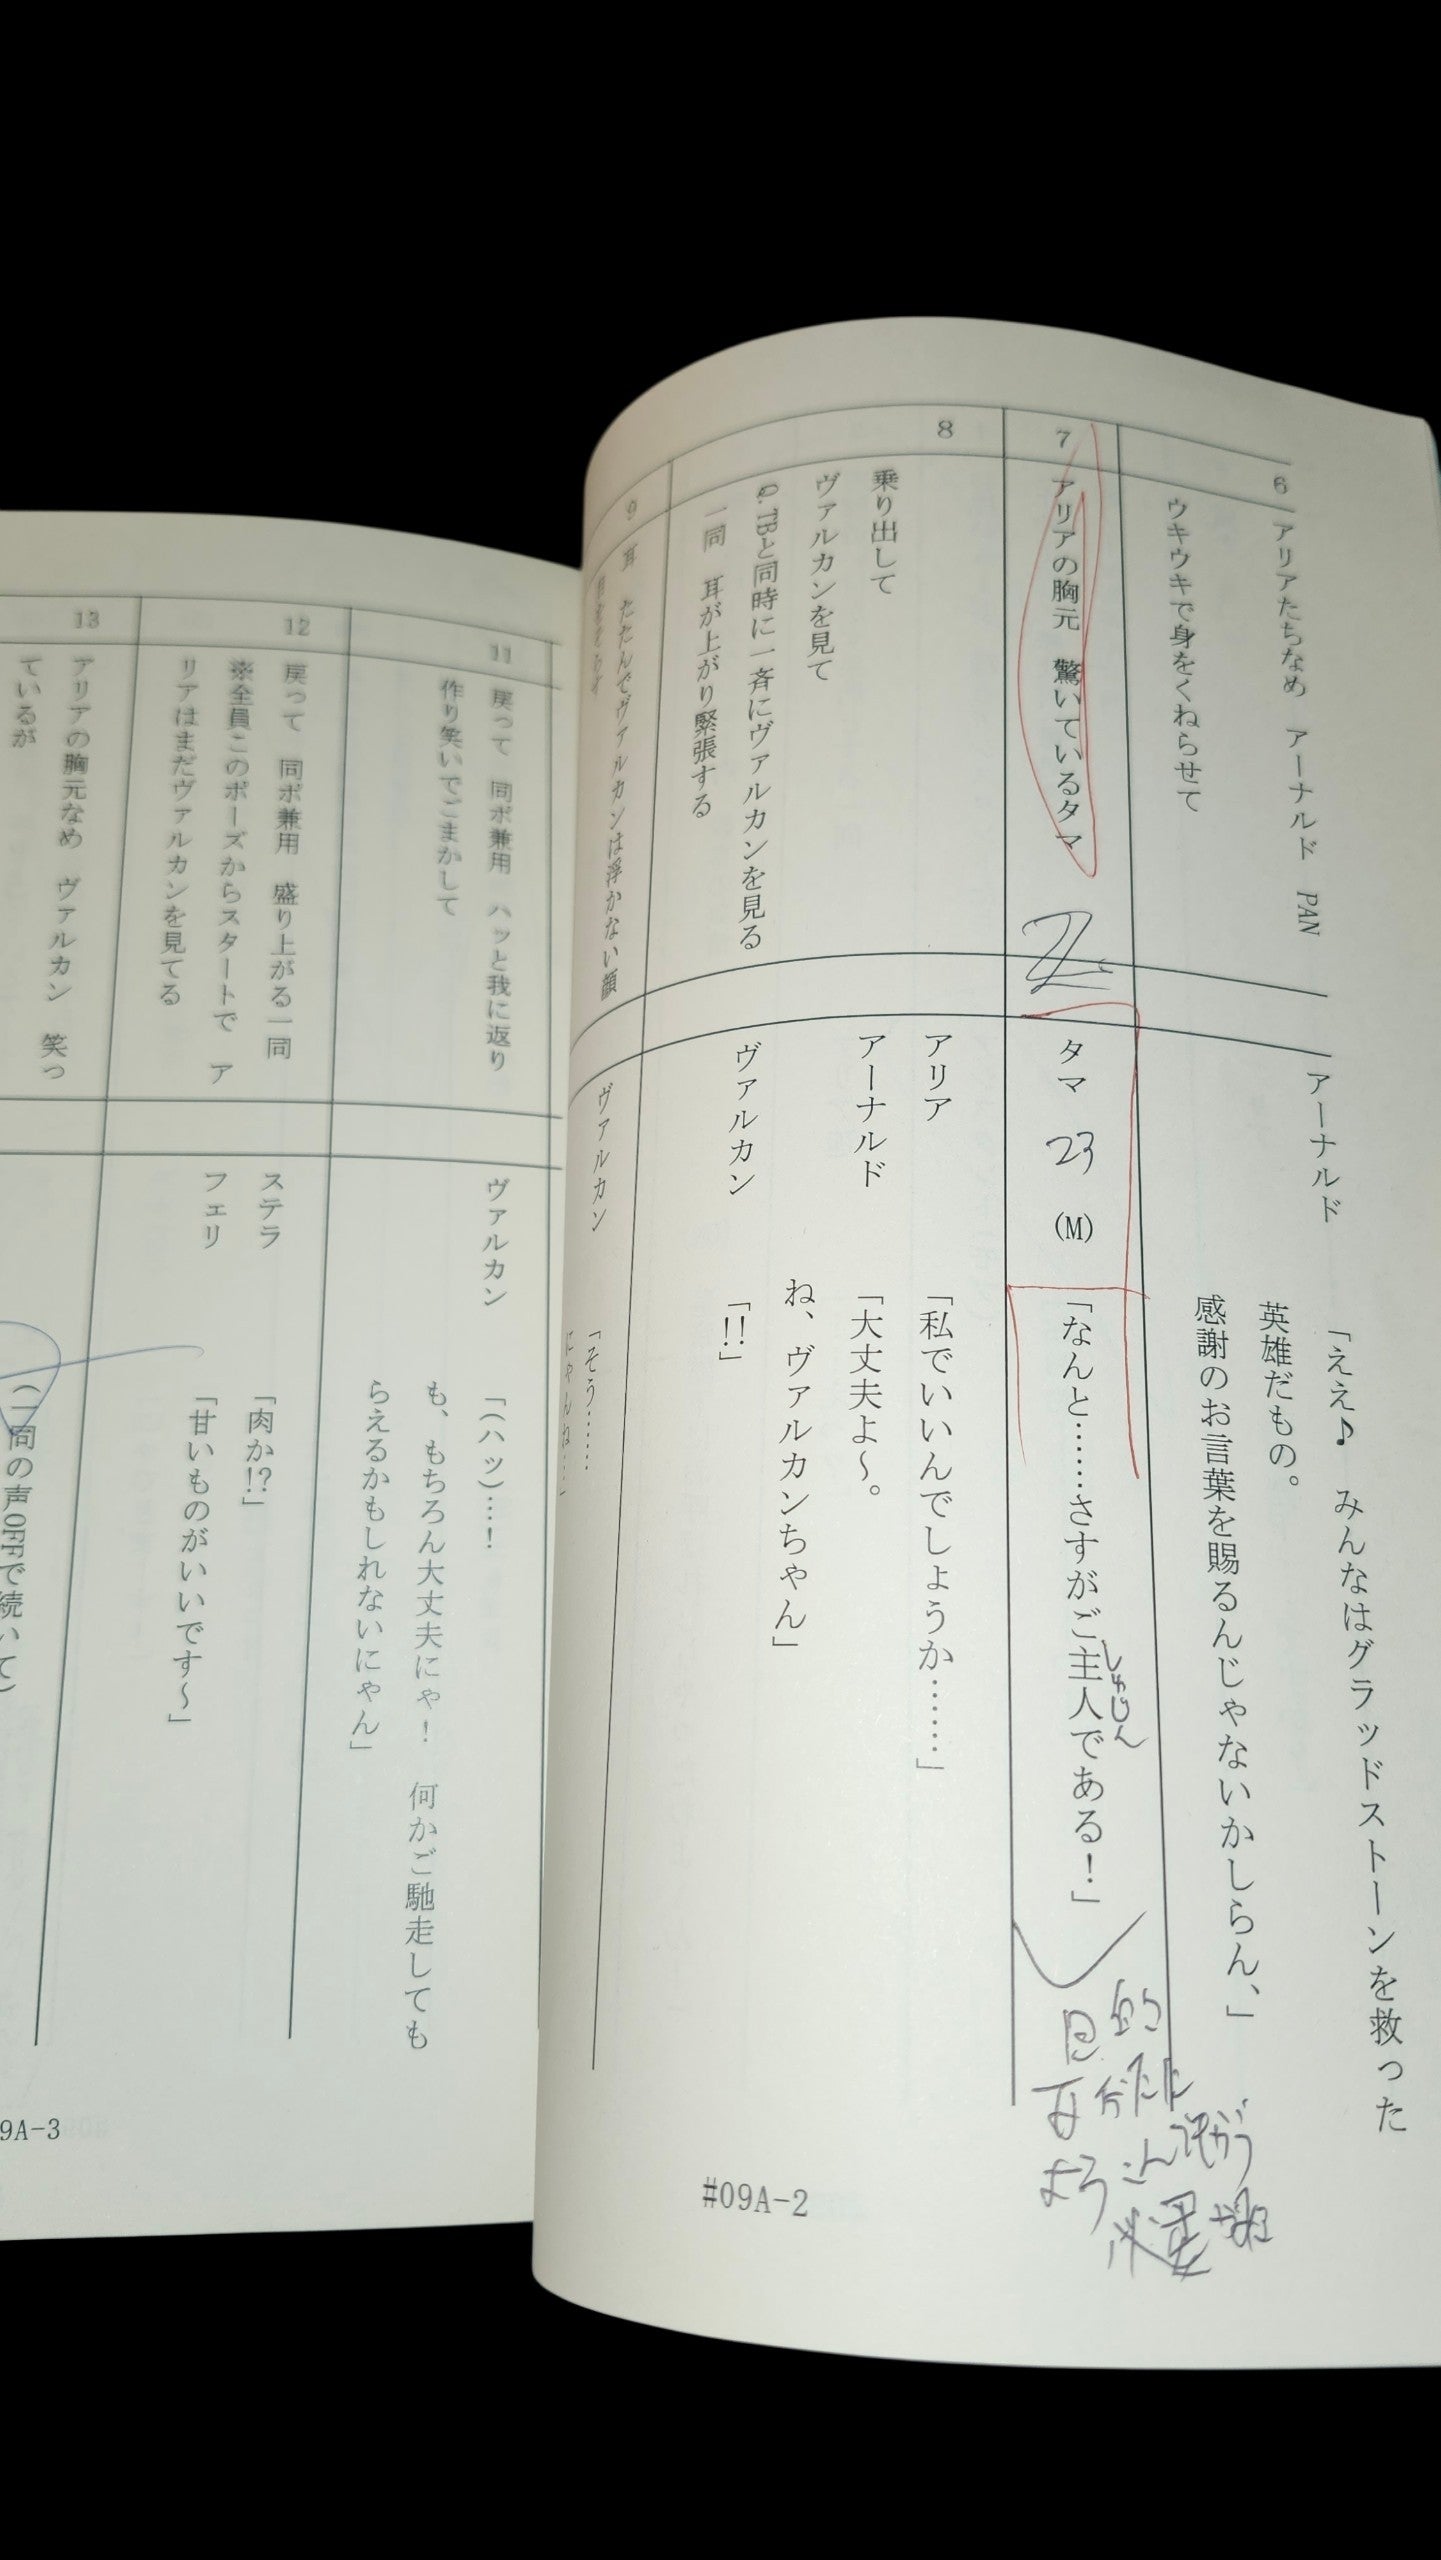 6
アリアたちなめ　アーナルド　PAN
ウキウキで身をくねらせて
アーナルド
「ええ♪　みんなはグラッドストーンを救った
英雄だもの。
感謝のお言葉を賜るんじゃないかしらん、」
7
アリアの胸元　驚いているタマ
タマ　23　(M)
「なんと……さすがご主人である！」
しゅじん
8
乗り出して
ヴァルカンを見て
Q.TBと同時に一斉にヴァルカンを見る
一同　耳が上がり緊張する
アリア
「私でいいんでしょうか……」
アーナルド
「大丈夫よ～。
ね、ヴァルカンちゃん」
ヴァルカン
「!!」
9
耳　たたんでヴァルカンは浮かない顔
ヴァルカン
「そう……
にゃんね…」
#09A-2
11
戻って　同ポ兼用　ハッと我に返り
作り笑いでごまかして
ヴァルカン
「(ハッ)…！
も、もちろん大丈夫にゃ！　何かご馳走しても
らえるかもしれないにゃん」
12
戻って　同ポ兼用　盛り上がる一同
※全員このポーズからスタートで　ア
リアはまだヴァルカンを見てる
ステラ
「肉か!?」
フェリ
「甘いものがいいです～」
13
アリアの胸元なめ　ヴァルカン　笑っ
ているが
(一同の声OFFで続いて)
9A-3